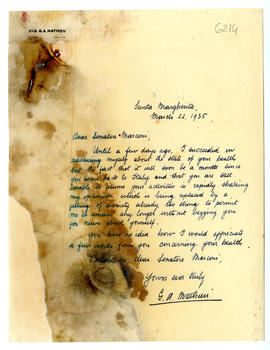 ING. G. A. MATHIEU
6214
Santa Margherita,
March 22, 1935
Dear Senatore Marconi,
Until a few days ago, I succeeded in
reassuring myself about the state of your health
but the fact that it will soon be a month since
you came back to Italy and that you are still
unable to resume your activities is rapidly shaking
my optimism which is being replaced by a
feeling of anxiety already too strong to permit
me to remain any longer without begging you
for news about yourself.
You have no idea how I would appreciate
a few words from you concerning your health.
Believe me, dear Senatore Marconi,
Yours ever truly
G. A. Mathieu